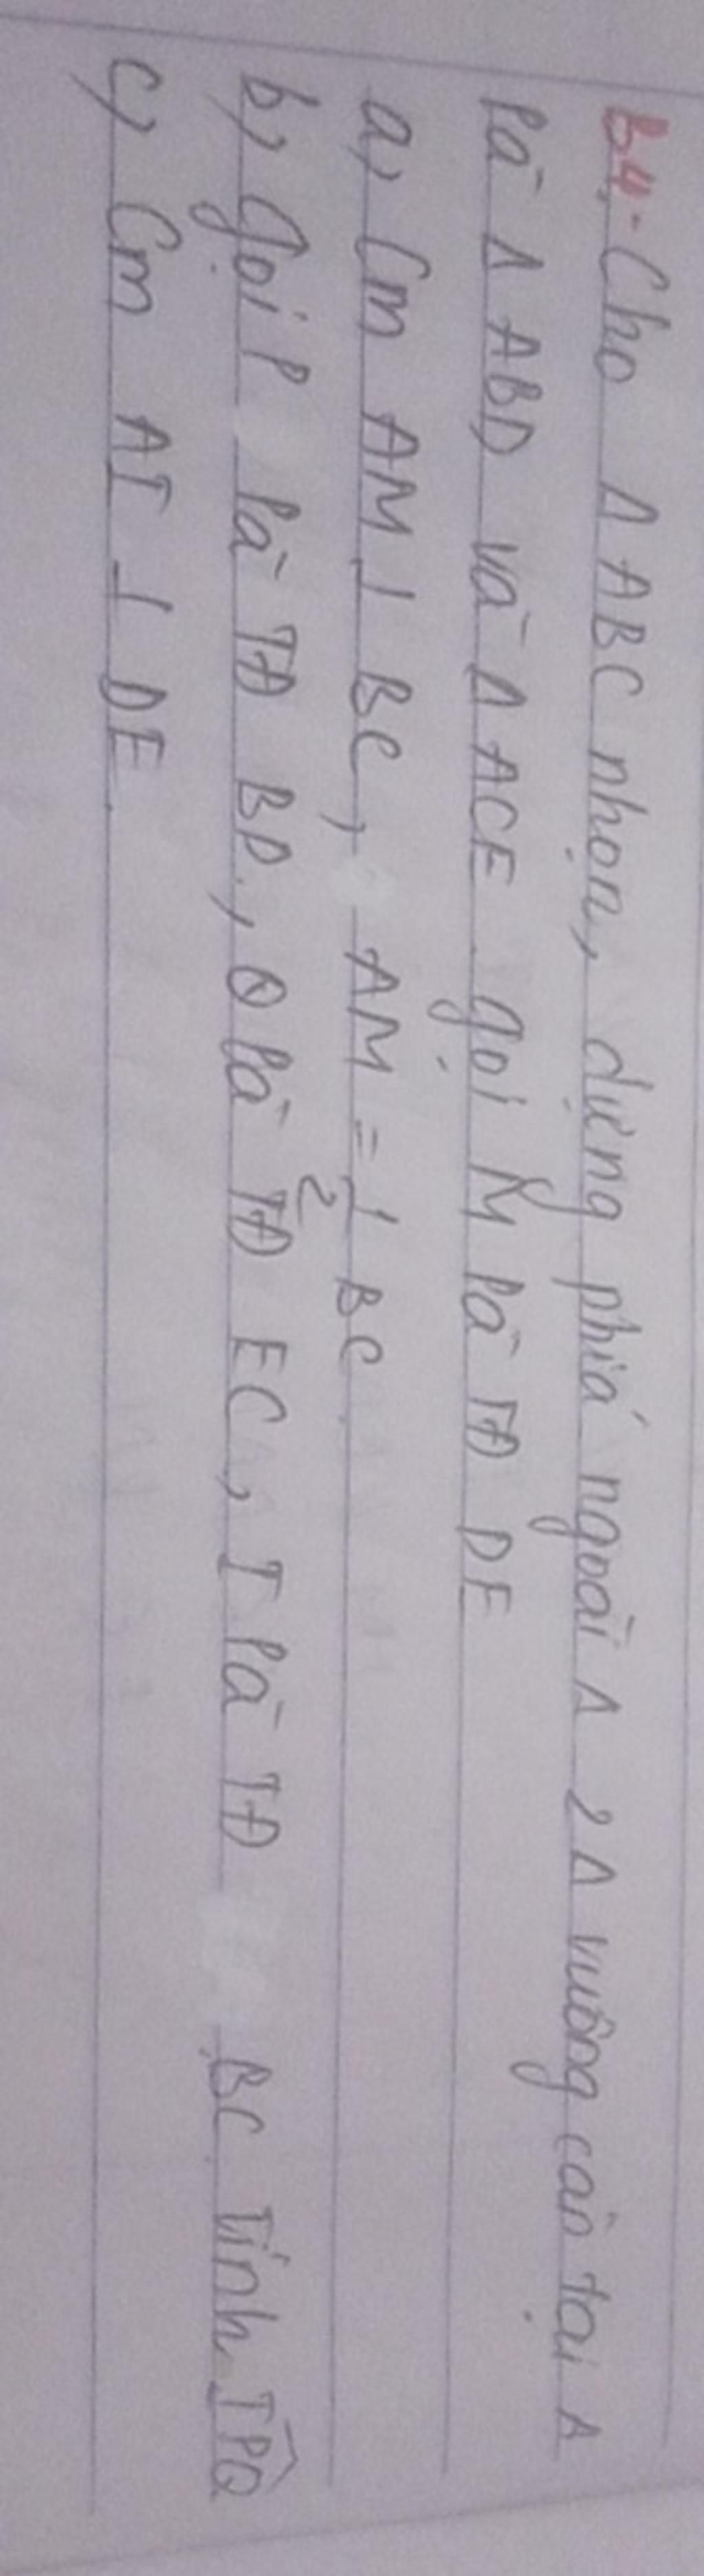 B4. Cho Δ ABC nhọn, dựng phía ngoài Δ 2 Δ vuông cân tại A
là Δ ABD và Δ ACE gọi M là TĐ DE
a, Cm AM ⊥ BC, AM = 1/2 BC
b, Gọi P là TĐ BD, Q là TĐ EC, I là TĐ BC Tính IPQ
c, Cm AI ⊥ DE